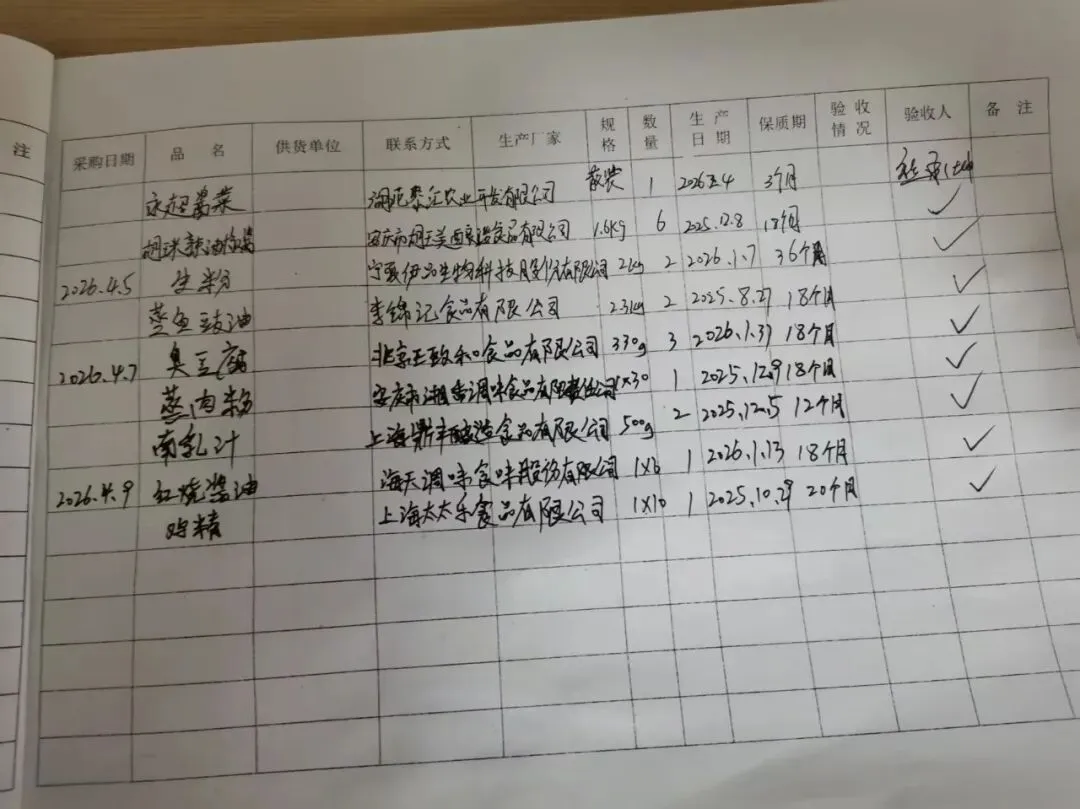 注
采购日期 品名 供货单位 联系方式 生产厂家 规格 数量 生产日期 保质期 验收情况 验收人 备注
散装 1 2026 4 3个月
有限公司 1.6kg 6 2025.12.8 18个月 ✓
2026.4.5 生粉 宁夏伊品生物科技股份有限公司 2kg 2 2026.1.7 36个月 ✓
蒸鱼豉油 李锦记食品有限公司 2.3kg 2 2025.8.27 18个月 ✓
2026.4.7 臭豆腐 北京王致和食品有限公司 330g 3 2026.1.31 18个月 ✓
蒸肉粉 安庆市 调味食品有限责任公司 1×30 1 2025.12.9 18个月 ✓
南乳汁 上海鼎丰酿造食品有限公司 500g 2 2025.12.5 12个月 ✓
2026.4.9 红烧酱油 海天调味食味股份有限公司 1×6 1 2026.1.13 18个月 ✓
鸡精 上海太太乐食品有限公司 1×10 1 2025.10.29 20个月 ✓